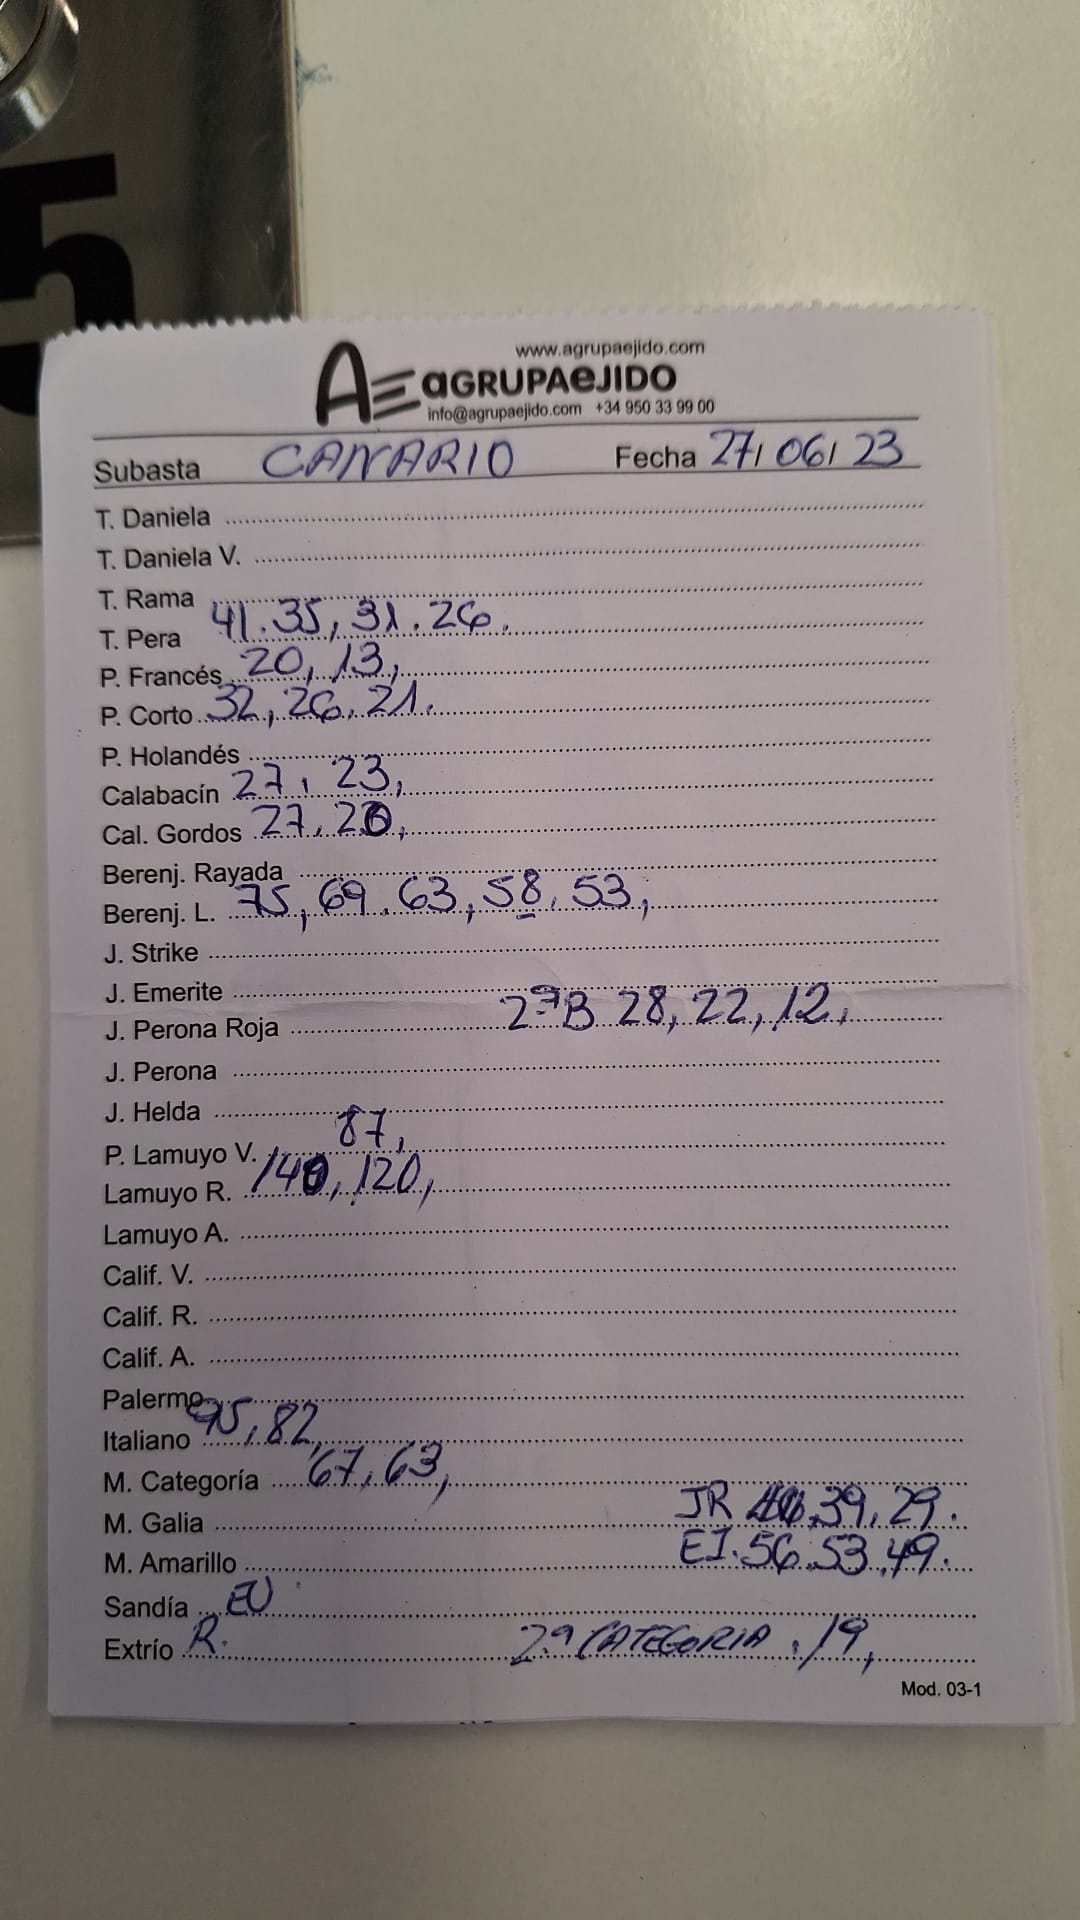 5
www.agrupaejido.com
AE aGRUPAeJIDO
info@agrupaejido.com +34 950 33 99 00
Subasta CANARIO Fecha 27/06/23
T. Daniela
T. Daniela V.
T. Rama
T. Pera 41. 35, 31. 26.
P. Francés 20, 13,
P. Corto 32, 26, 21.
P. Holandés
Calabacín 27, 23,
Cal. Gordos 27, 20,
Berenj. Rayada
Berenj. L. 75, 69. 63, 58, 53,
J. Strike
J. Emerite
J. Perona Roja 2ªB 28, 22, 12,
J. Perona
J. Helda
P. Lamuyo V. 87,
Lamuyo R. 140, 120,
Lamuyo A.
Calif. V.
Calif. R.
Calif. A.
Palermo
Italiano 95, 82,
M. Categoría 67, 63,
M. Galia JR 39, 29.
M. Amarillo EJ. 56. 53. 49.
Sandía EU
Extrío R. 2ª CATEGORIA. 19,
Mod. 03-1